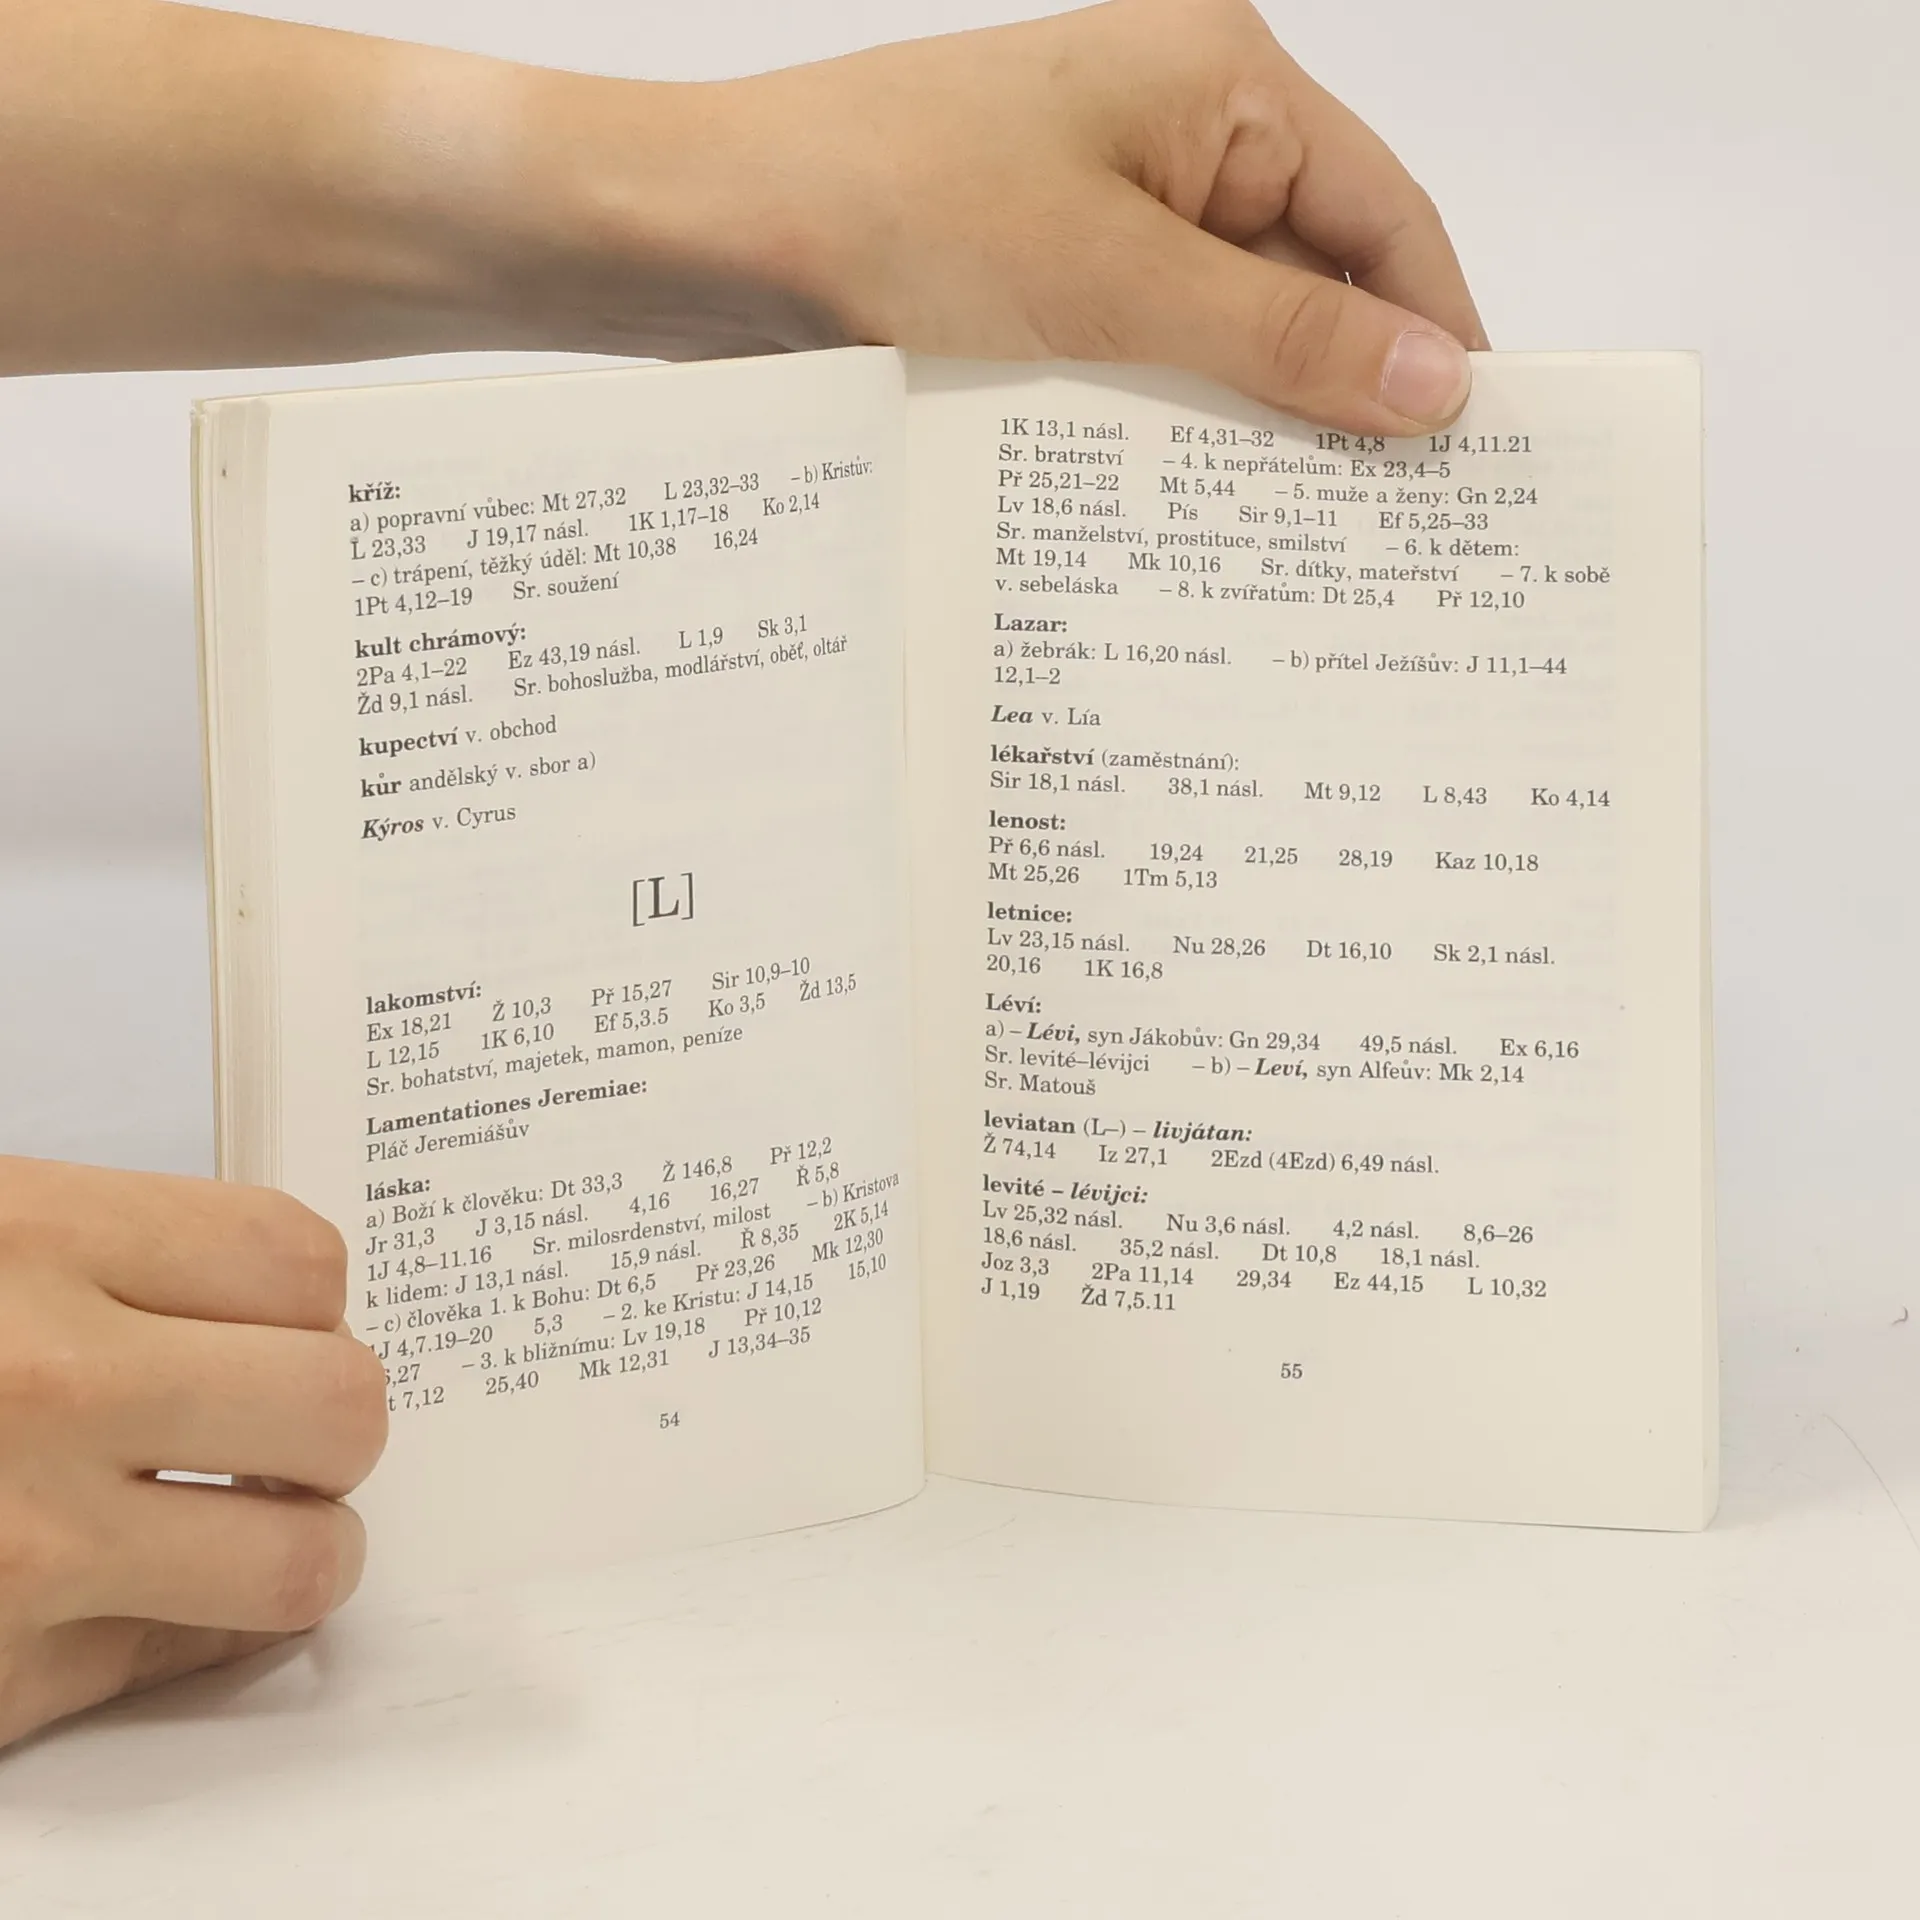 kříž:
a) popravní vůbec: Mt 27,32 L 23,32–33 – b) Kristův:
L 23,33 J 19,17 násl. 1K 1,17–18 Ko 2,14
– c) trápení, těžký úděl: Mt 10,38 16,24
1Pt 4,12–19 Sr. soužení
kult chrámový:
2Pa 4,1–22 Ez 43,19 násl. L 1,9 Sk 3,1
Žd 9,1 násl. Sr. bohoslužba, modlářství, oběť, oltář
kupectví v. obchod
kůr andělský v. sbor a)
Kýros v. Cyrus
[L]
lakomství:
Ex 18,21 Ž 10,3 Př 15,27 Sir 10,9–10
L 12,15 1K 6,10 Ef 5,3.5 Ko 3,5 Žd 13,5
Sr. bohatství, majetek, mamon, peníze
Lamentationes Jeremiae:
Pláč Jeremiášův
láska:
a) Boží k člověku: Dt 33,3 Ž 146,8 Př 12,2
Jr 31,3 J 3,15 násl. 4,16 16,27 Ř 5,8
1J 4,8–11.16 Sr. milosrdenství, milost – b) Kristova
k lidem: J 13,1 násl. 15,9 násl. Ř 8,35 2K 5,14
– c) člověka 1. k Bohu: Dt 6,5 Př 23,26 Mk 12,30
1J 4,7.19–20 5,3 – 2. ke Kristu: J 14,15 15,10
,27 – 3. k bližnímu: Lv 19,18 Př 10,12
t 7,12 25,40 Mk 12,31 J 13,34–35
54
1K 13,1 násl. Ef 4,31–32 1Pt 4,8 1J 4,11.21
Sr. bratrství – 4. k nepřátelům: Ex 23,4–5
Př 25,21–22 Mt 5,44 – 5. muže a ženy: Gn 2,24
Lv 18,6 násl. Pís Sir 9,1–11 Ef 5,25–33
Sr. manželství, prostituce, smilství – 6. k dětem:
Mt 19,14 Mk 10,16 Sr. dítky, mateřství – 7. k sobě
v. sebeláska – 8. k zvířatům: Dt 25,4 Př 12,10
Lazar:
a) žebrák: L 16,20 násl. – b) přítel Ježíšův: J 11,1–44
12,1–2
Lea v. Lía
lékařství (zaměstnání):
Sir 18,1 násl. 38,1 násl. Mt 9,12 L 8,43 Ko 4,14
lenost:
Př 6,6 násl. 19,24 21,25 28,19 Kaz 10,18
Mt 25,26 1Tm 5,13
letnice:
Lv 23,15 násl. Nu 28,26 Dt 16,10 Sk 2,1 násl.
20,16 1K 16,8
Léví:
a) – Lévi, syn Jákobův: Gn 29,34 49,5 násl. Ex 6,16
Sr. levité–lévijci – b) – Leví, syn Alfeův: Mk 2,14
Sr. Matouš
leviatan (L–) – livjátan:
Ž 74,14 Iz 27,1 2Ezd (4Ezd) 6,49 násl.
levité – lévijci:
Lv 25,32 násl. Nu 3,6 násl. 4,2 násl. 8,6–26
18,6 násl. 35,2 násl. Dt 10,8 18,1 násl.
Joz 3,3 2Pa 11,14 29,34 Ez 44,15 L 10,32
J 1,19 Žd 7,5.11
55